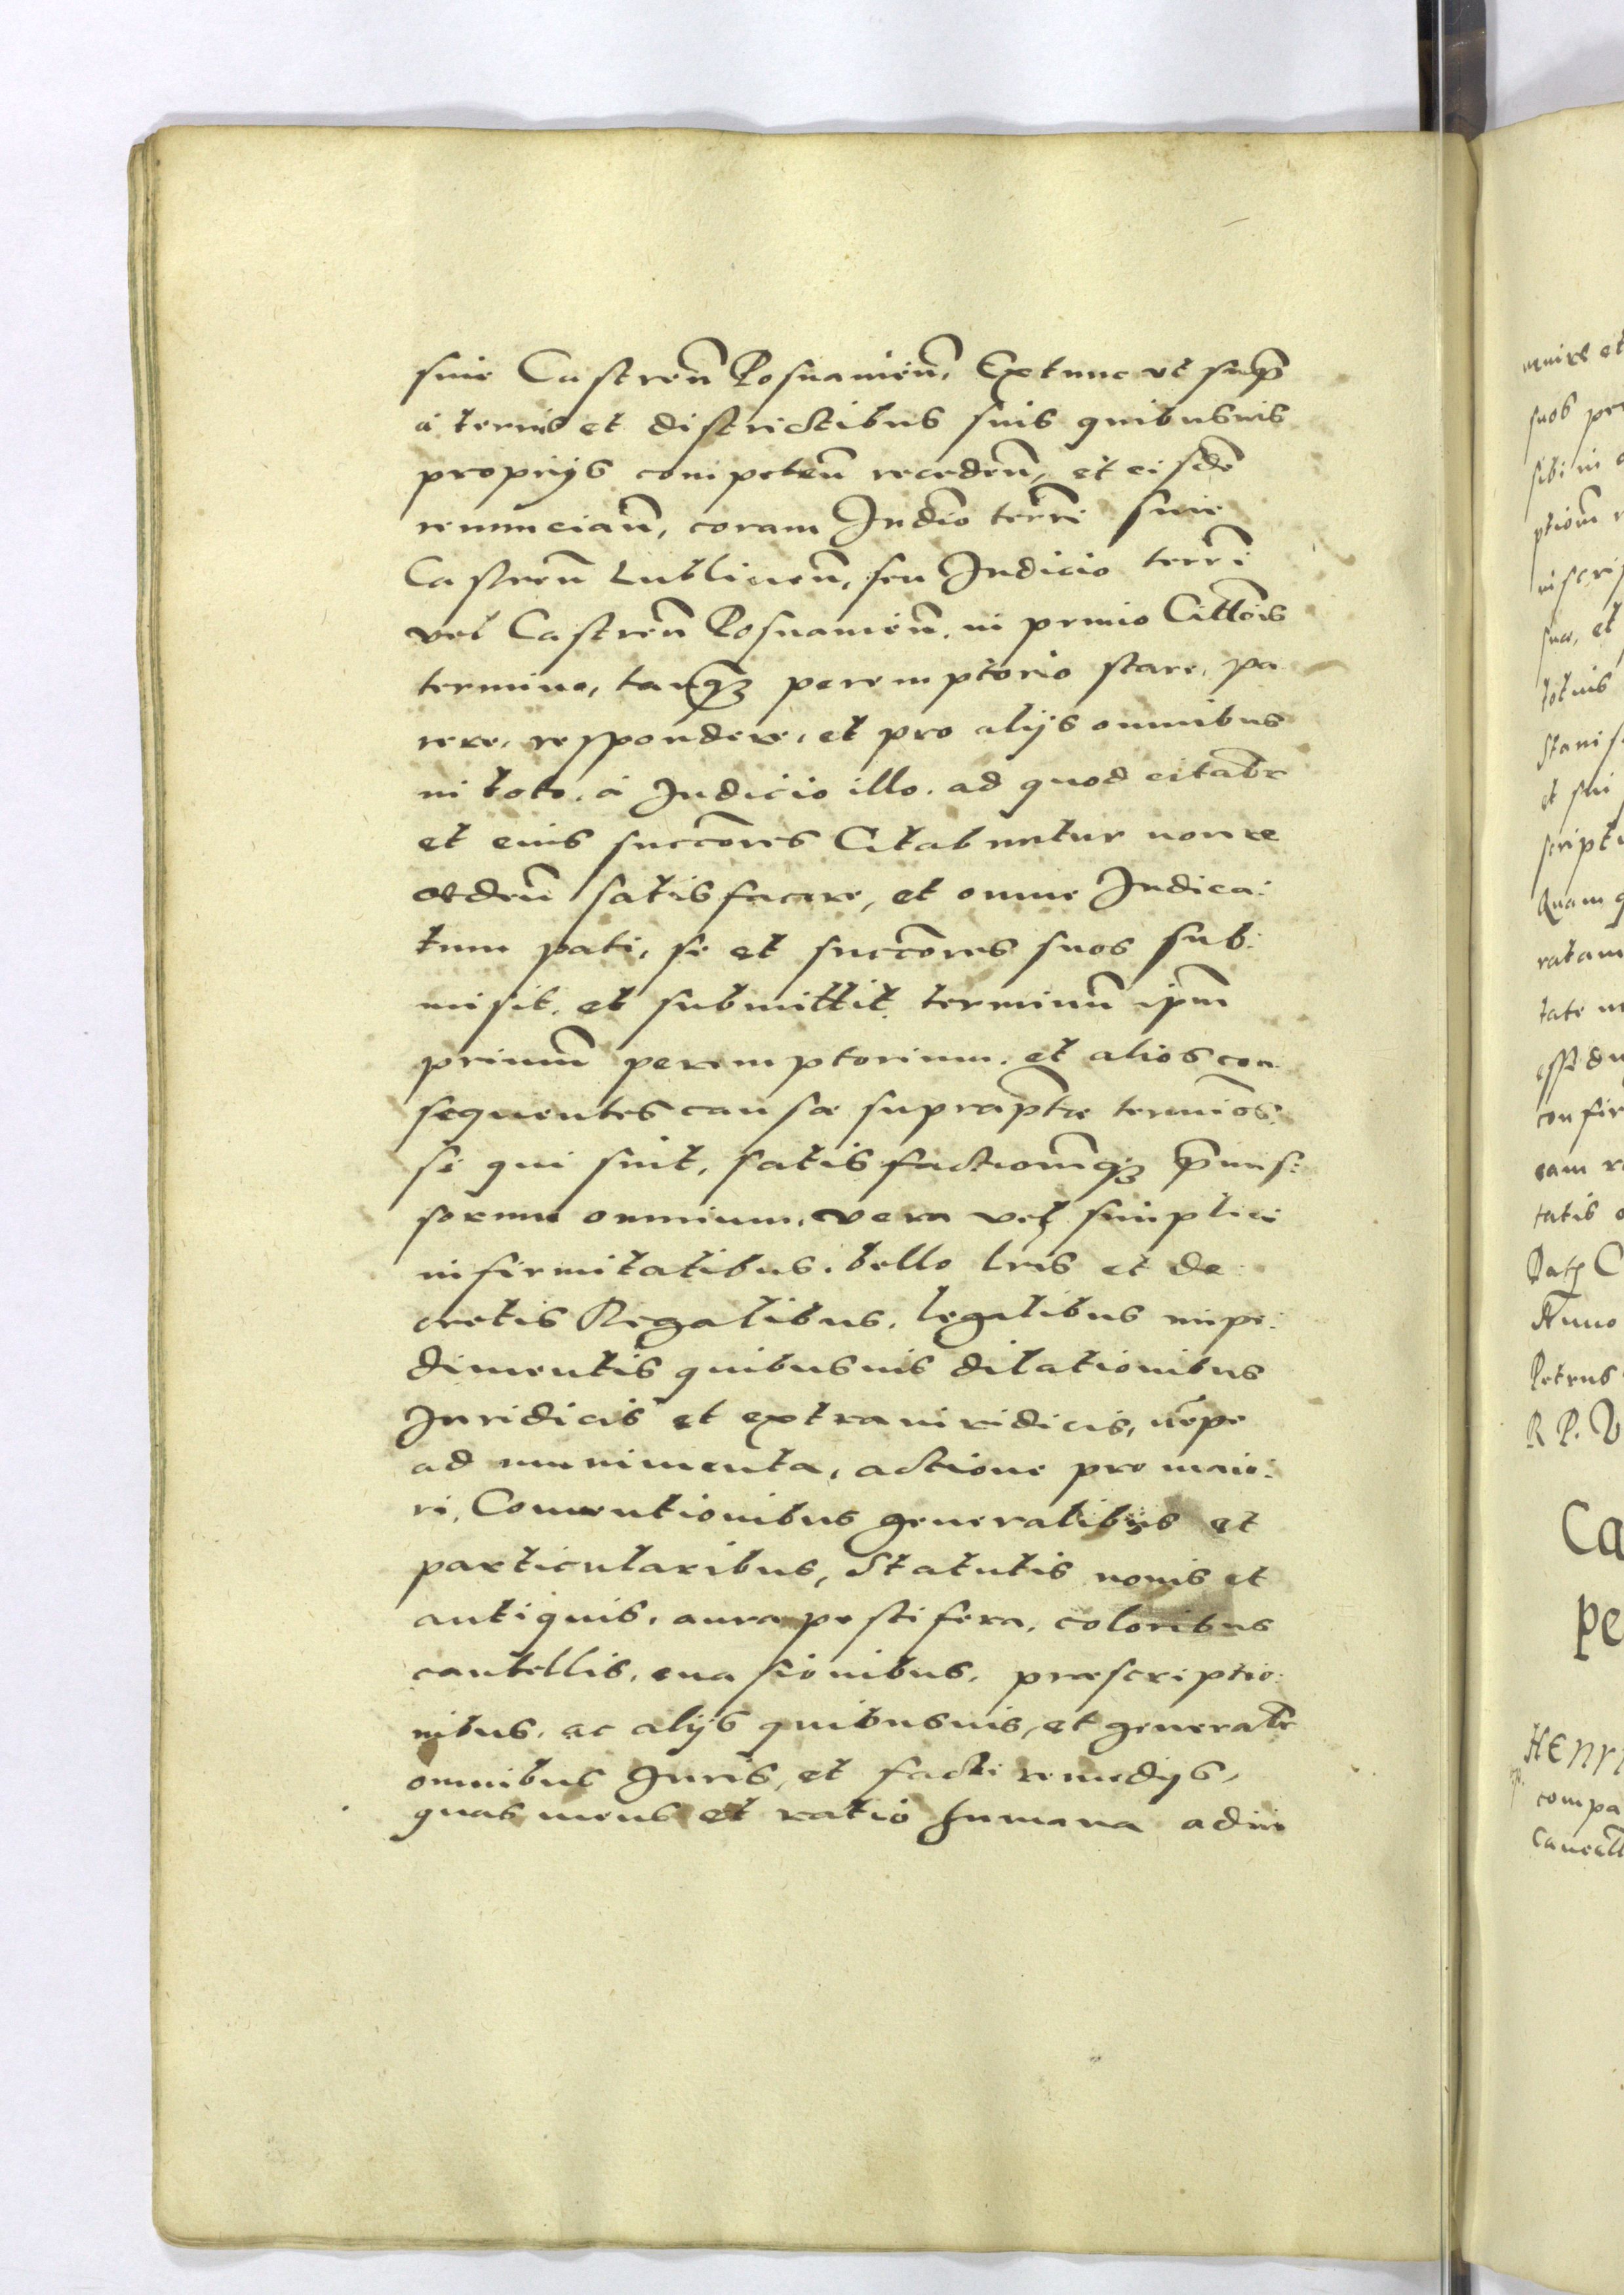 siue Castren̄ Posnanien̄, Extunc vt sup̄
a terris et districtibus suis quibusuis
proprijs competen̄ receden̄, et eisdē
renuncian̄, coram Iudīo terrī siue
Castren̄ Lublinen̄, seu Iudicio terrī
vel Castren̄ Posnanien̄, in primo Citt̄ois
termino, tanq̄ꝫ peremptorio stare, pa
rere, respondere, et pro alijs omnibus
in toto, a Iudicio illo, ad quod citab̄r
et eius succ̄ores Citabuntur non re
ceden̄ satisfacere, et omne Iudica:
tum pati, se et succ̄ores suos sub:
misit, et submittit, terminū ipm̄
primū peremptorium, et alios con
sequentes causæ suprap̄tæ termīos,
si qui sint, satisfactionēqꝫ p̄mis:
sorum omnium, vera vel simplici
infirmitatibus, bello lr̄is et de
cretis Regalibus, legalibus impe:
dimentis quibusuis dilationibus
Iuridicis et extraiuridicis, nēpe
ad munimenta, actione pro maio:
ri, Conuentionibus generalibus et
particularibus, Statutis nouis et
antiquis, aura pestifera, coloribus
cautellis, euasionibus, præscriptio:
nibus, ac alijs quibusuis, et generalr̄
omnibus Iuris, et facti remedijs,
quas mens et ratio humana adin
muire et
suos
sibi in
ptionē
inscrip
suæ, et
totius
Stanis
et sui
scripti
Quam q
ratam
tate
esse du
confir
eam r
tatis
Dat C
Anno
Petrus
R P. V
Ca
pe
HENRI
compa